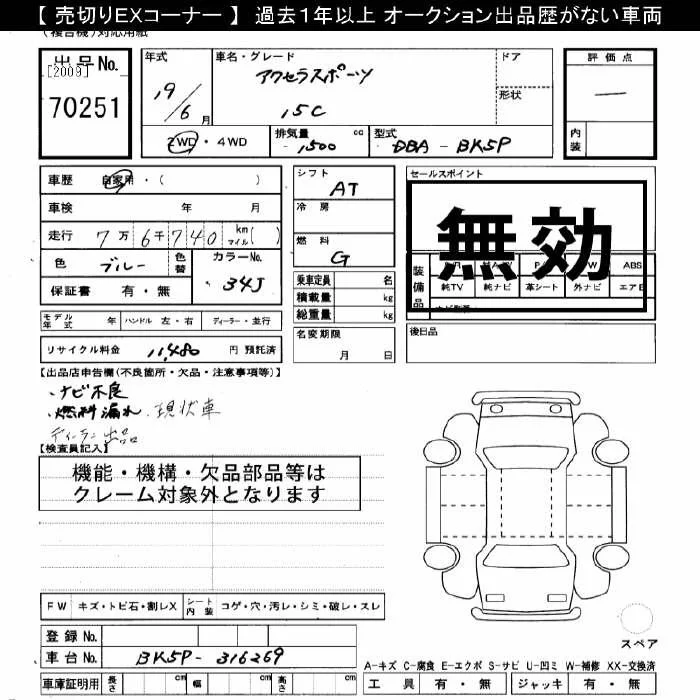 【 売切りEXコーナー 】 過去１年以上 オークション出品歴がない車両
(複合機)対応用紙
出 品 No.
[2009]
70251
年式
19/6 月
車名・グレード
アクセラスポーツ
15C
ドア
形状
評 価 点
―
内装
2WD ・ 4WD
排気量 1,500 cc
型式 DBA - BK5P
車歴 自家用・( )
車検 年 月
走行 7万6千740 km マイル( )
色 ブルー 色替 カラーNo. 34J
保証書 有・無
モデル年式 年 ハンドル 左・右 ディーラー・並行
リサイクル料金 11,480 円 預託済
シフト AT
冷房
燃料 G
乗車定員 名
積載量 kg
総重量 kg
名変期限
月 日
セールスポイント
無効
装備品
ABS
純TV 純ナビ 革シート 外ナビ エアB
後日品
【出品店申告欄(不良箇所・欠品・注意事項等)】
・ナビ不良
・燃料漏れ 現状車
ディーラー出品
【検査員記入】
機能・機構・欠品部品等は
クレーム対象外となります
FW キズ・トビ石・割レX シート内装 コゲ・穴・汚レ・シミ・破レ・スレ
登録 No.
車台 No. BK5P- 316269
車庫証明用 長さ cm 幅 cm 高さ cm
スペア
A-キズ C-腐食 E-エクボ S-サビ U-凹ミ W-補修 XX-交換済
工具 有・無 ジャッキ 有・無